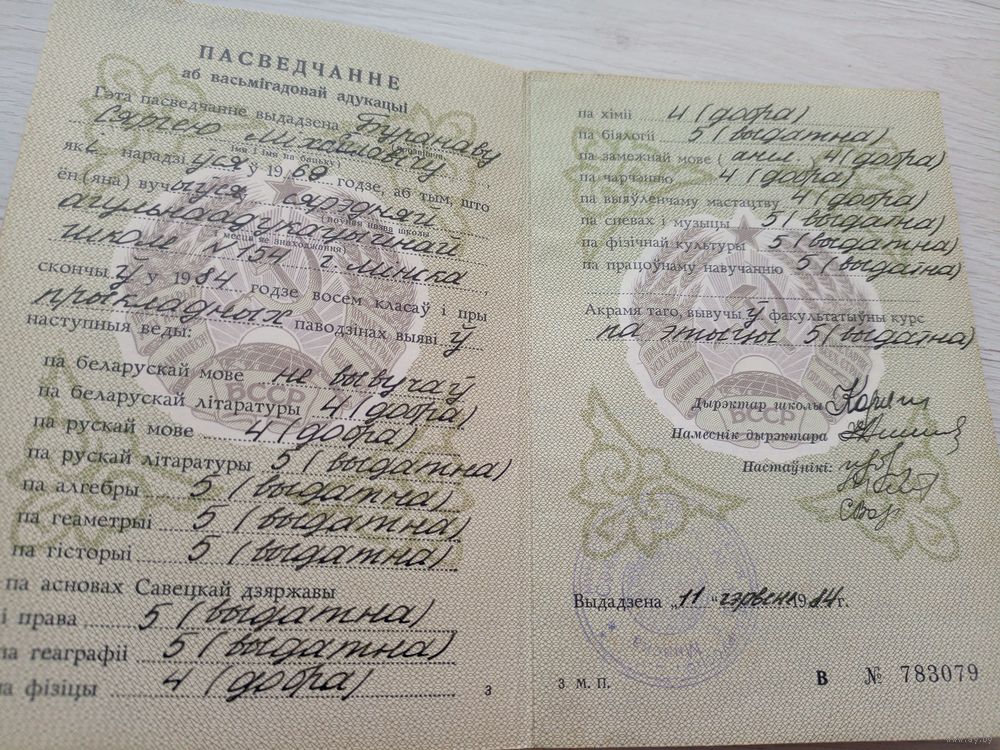 ПАСВЕДЧАННЕ
аб васьмігадовай адукацыі
Гэта пасведчанне выдадзена Буранаву
Сяргею Міхайлавічу
(прозвішча, імя і імя па бацьку)
які нарадзіўся ў 1969 годзе, аб тым, што
ён (яна) вучыўся сярэдняй
(поўная назва школы
агульнаадукацыйнай
месца яе знаходжання)
школе № 154 г. Мінска
скончыў у 1984 годзе восем класаў і пры
прыкладных паводзінах выявіў
наступныя веды:
па беларускай мове не вывучаў
па беларускай літаратуры 4 (добра)
па рускай мове 4 (добра)
па рускай літаратуры 5 (выдатна)
па алгебры 5 (выдатна)
па геаметрыі 5 (выдатна)
па гісторыі 5 (выдатна)
па асновах Савецкай дзяржавы
і права 5 (выдатна)
па геаграфіі 5 (выдатна)
па фізіцы 4 (добра)
3
па хіміі 4 (добра)
па біялогіі 5 (выдатна)
па замежнай мове (англ.) 4 (добра)
па чарчэнню 4 (добра)
па выяўленчаму мастацтву 4 (добра)
па спевах і музыцы 5 (выдатна)
па фізічнай культуры 5 (выдатна)
па працоўнаму навучанню 5 (выдатна)
Акрамя таго, вывучыў факультатыўны курс
па этыцы 5 (выдатна)
БССР
БССР
Дырэктар школы
Намеснік дырэктара
Настаўнікі:
Выдадзена „11“ чэрвеня 1984 г.
3 М. П.
В № 783079